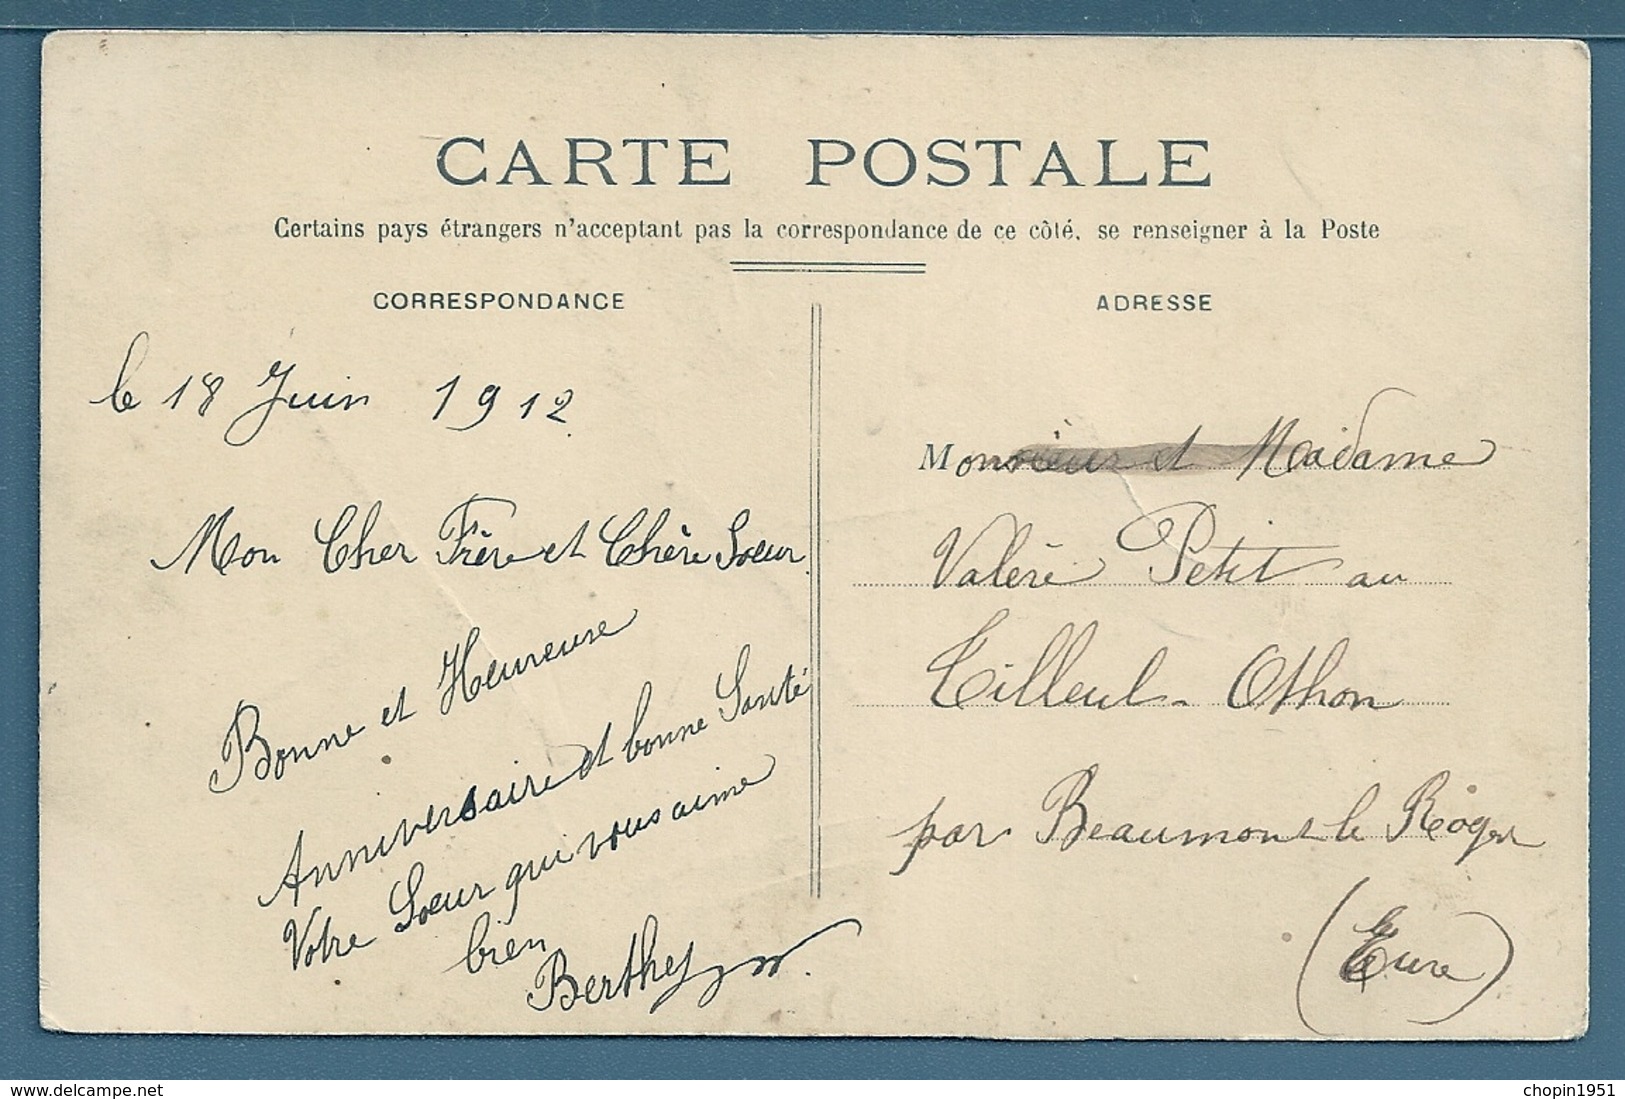 CARTE POSTALE
Certains pays étrangers n'acceptant pas la correspondance de ce côté, se renseigner à la Poste
CORRESPONDANCE
le 18 Juin 1912
Mon Cher Frère et Chère Soeur
Bonne et Heureuse
Anniversaire et bonne Santé
Votre Soeur qui vous aime
bien
Berthe
ADRESSE
Monsieur et Madame
Valère Petit au
Tilleul-Othon
par Beaumont le Roger
(Eure)
www.delcampe.net
chopin1951